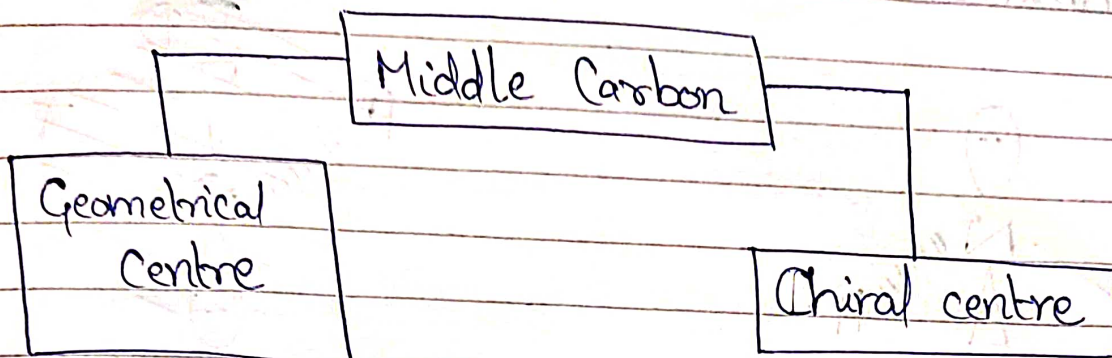 Middle Carbon
Geometrical
Centre
Chiral centre